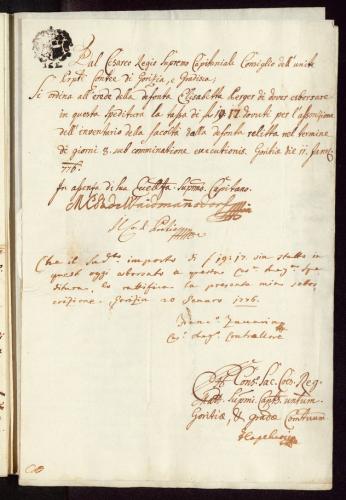 Dal Cesareo Regio Supremo Capitaniale Consiglio dell'unite
Contee di Gorizia, e Gradisca,
Si ordina all'erede della defonta Elisabetta Kerpes di dover esborsare
in questa Speditura la tassa di f 19:17 dovuti per l'apposizione
dell'inventario della facoltà dalla defonta relitta nel termine
di giorni 8. sub comminatione executionis. Goritiæ die 11. Janⁱ
1776.
In assenza di Sua Eccellza Suppmo Capitano.
Che il sudto importo di f 19:17 sia stato in
quest' oggi esborsato a questa Spe-
ditura, lo rattifica la presente mia sotto-
scrizione. Gorizia 20 Genaro 1776.
Controllore
Cons: Sac. Cæs. Reg.
Supmi Captus unitum
Goritiæ, et Gradæ Comituum